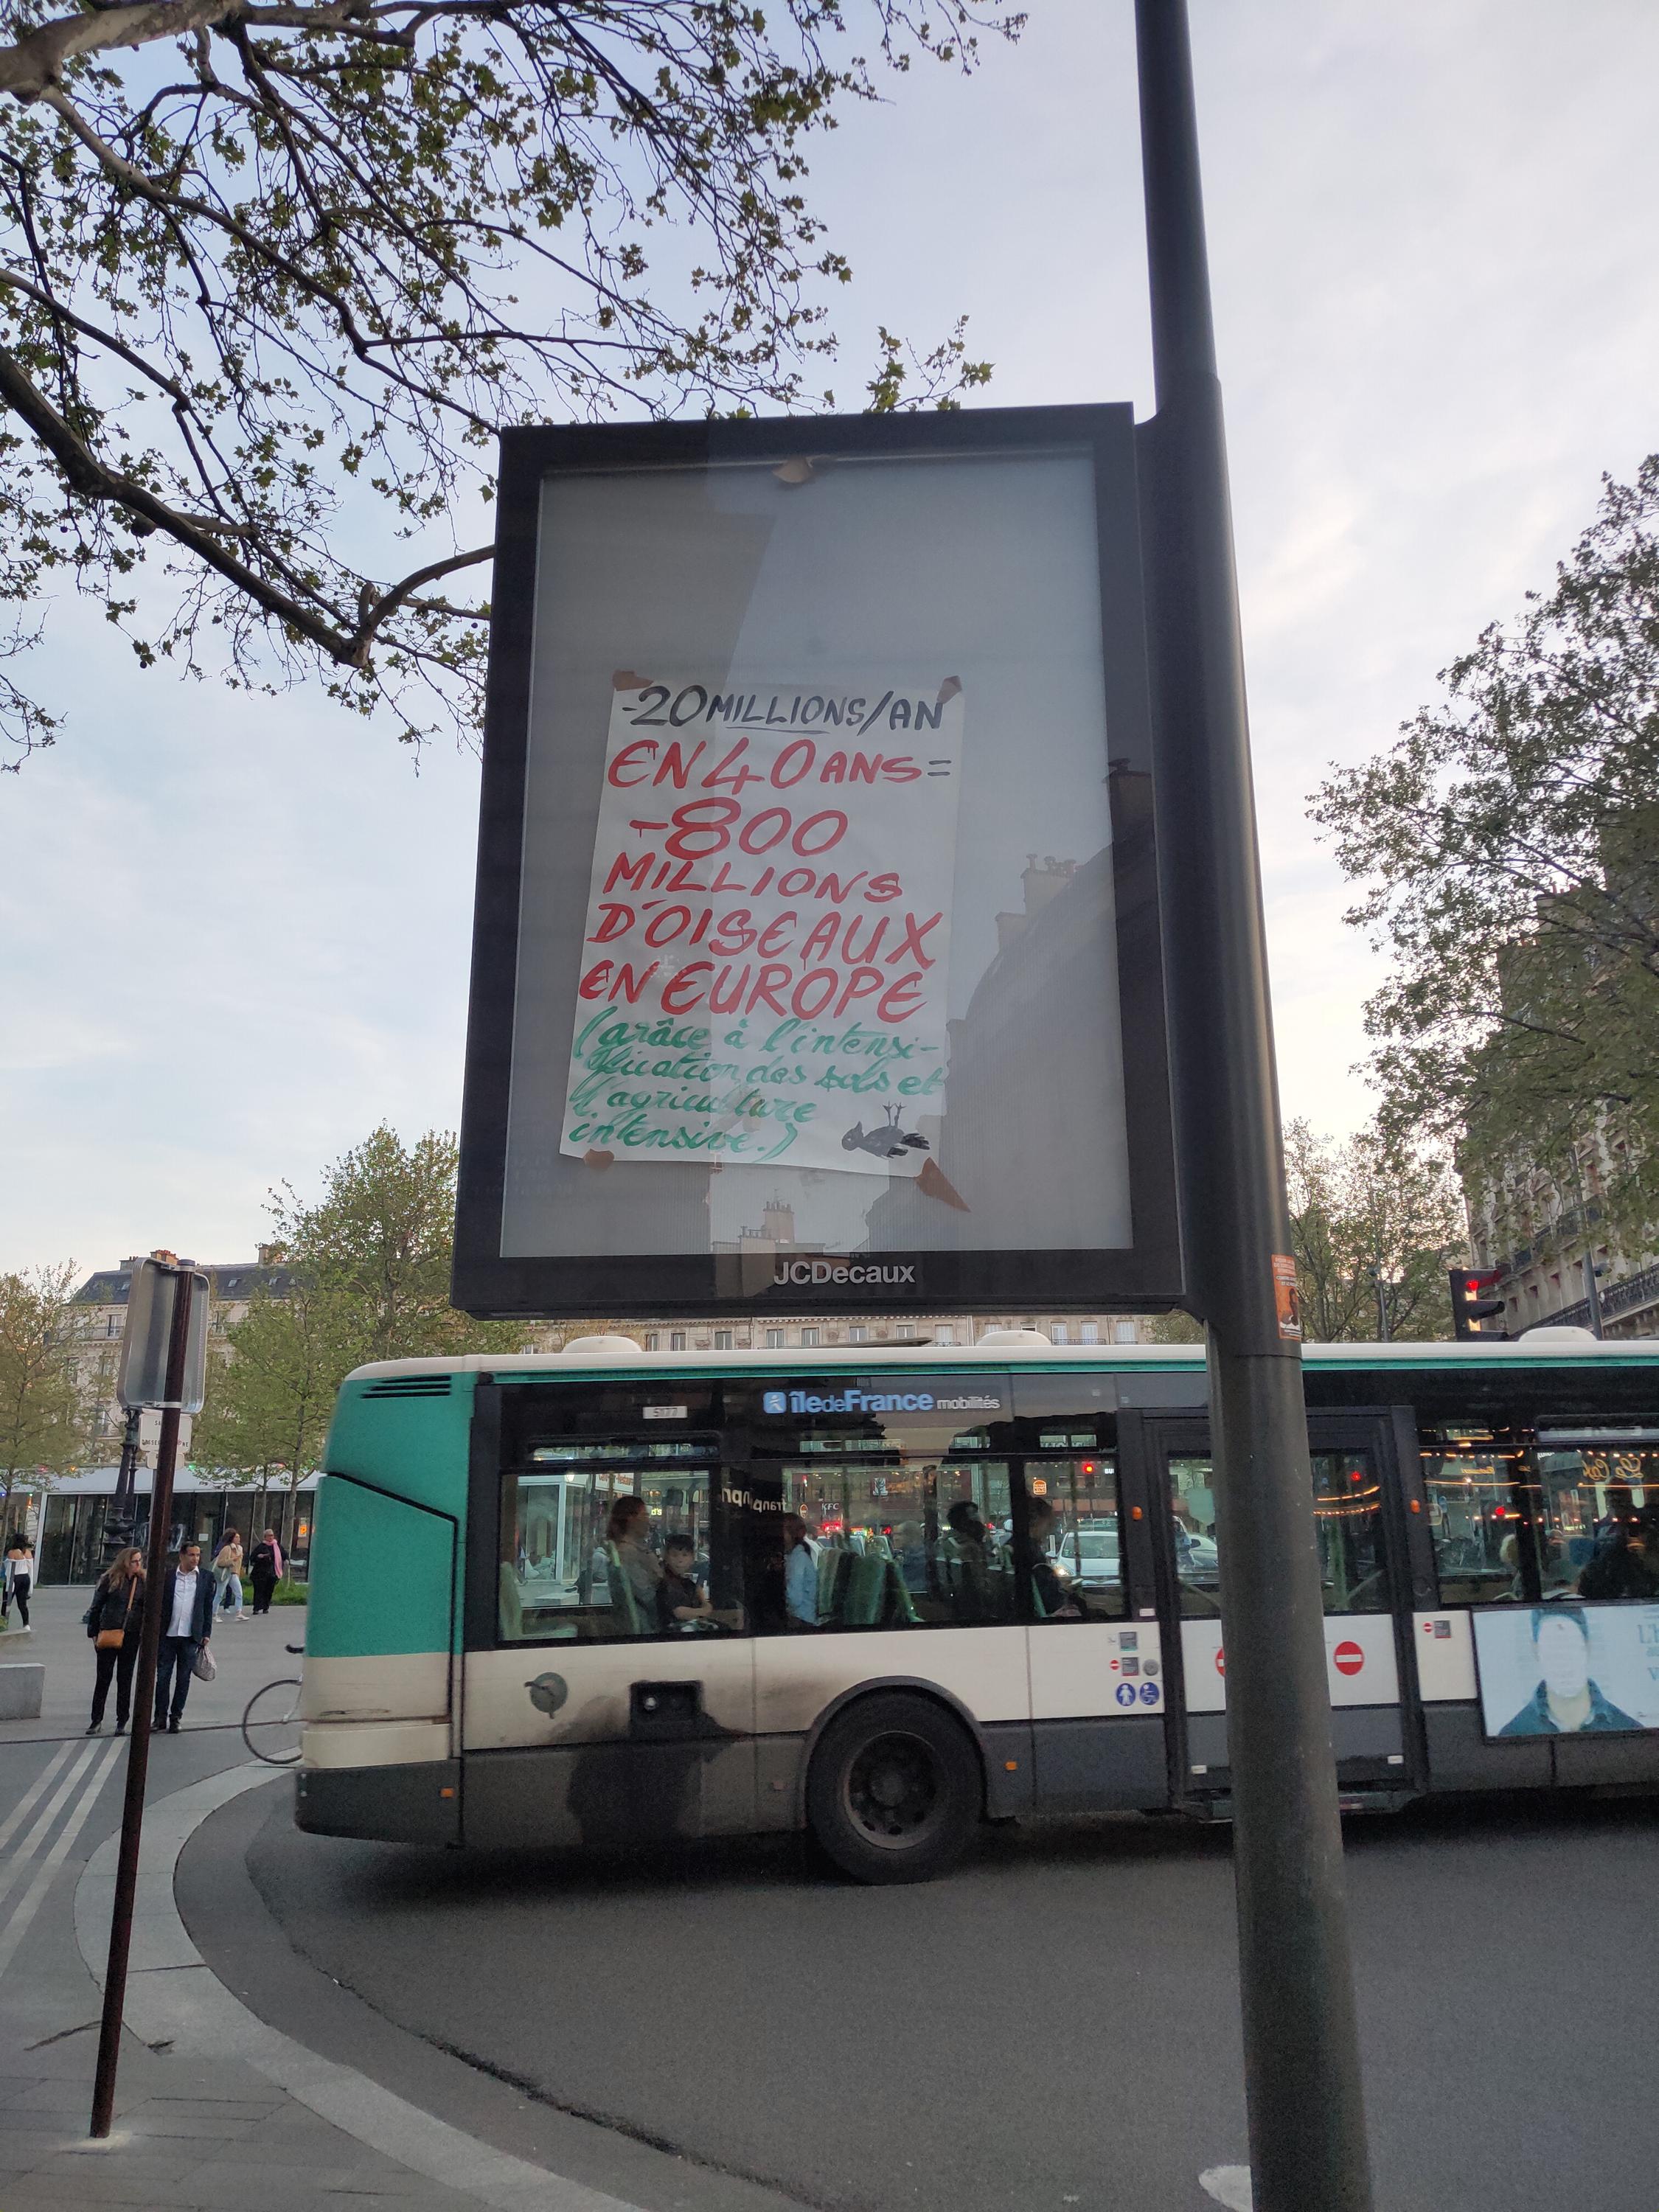 -20 MILLIONS/AN
EN 40 ANS=
-800
MILLIONS
D'OISEAUX
EN EUROPE
(grâce à l'intensi-
fication des sols et
l'agriculture
intensive.)
JCDecaux
îledeFrance mobilités
5177
KFC